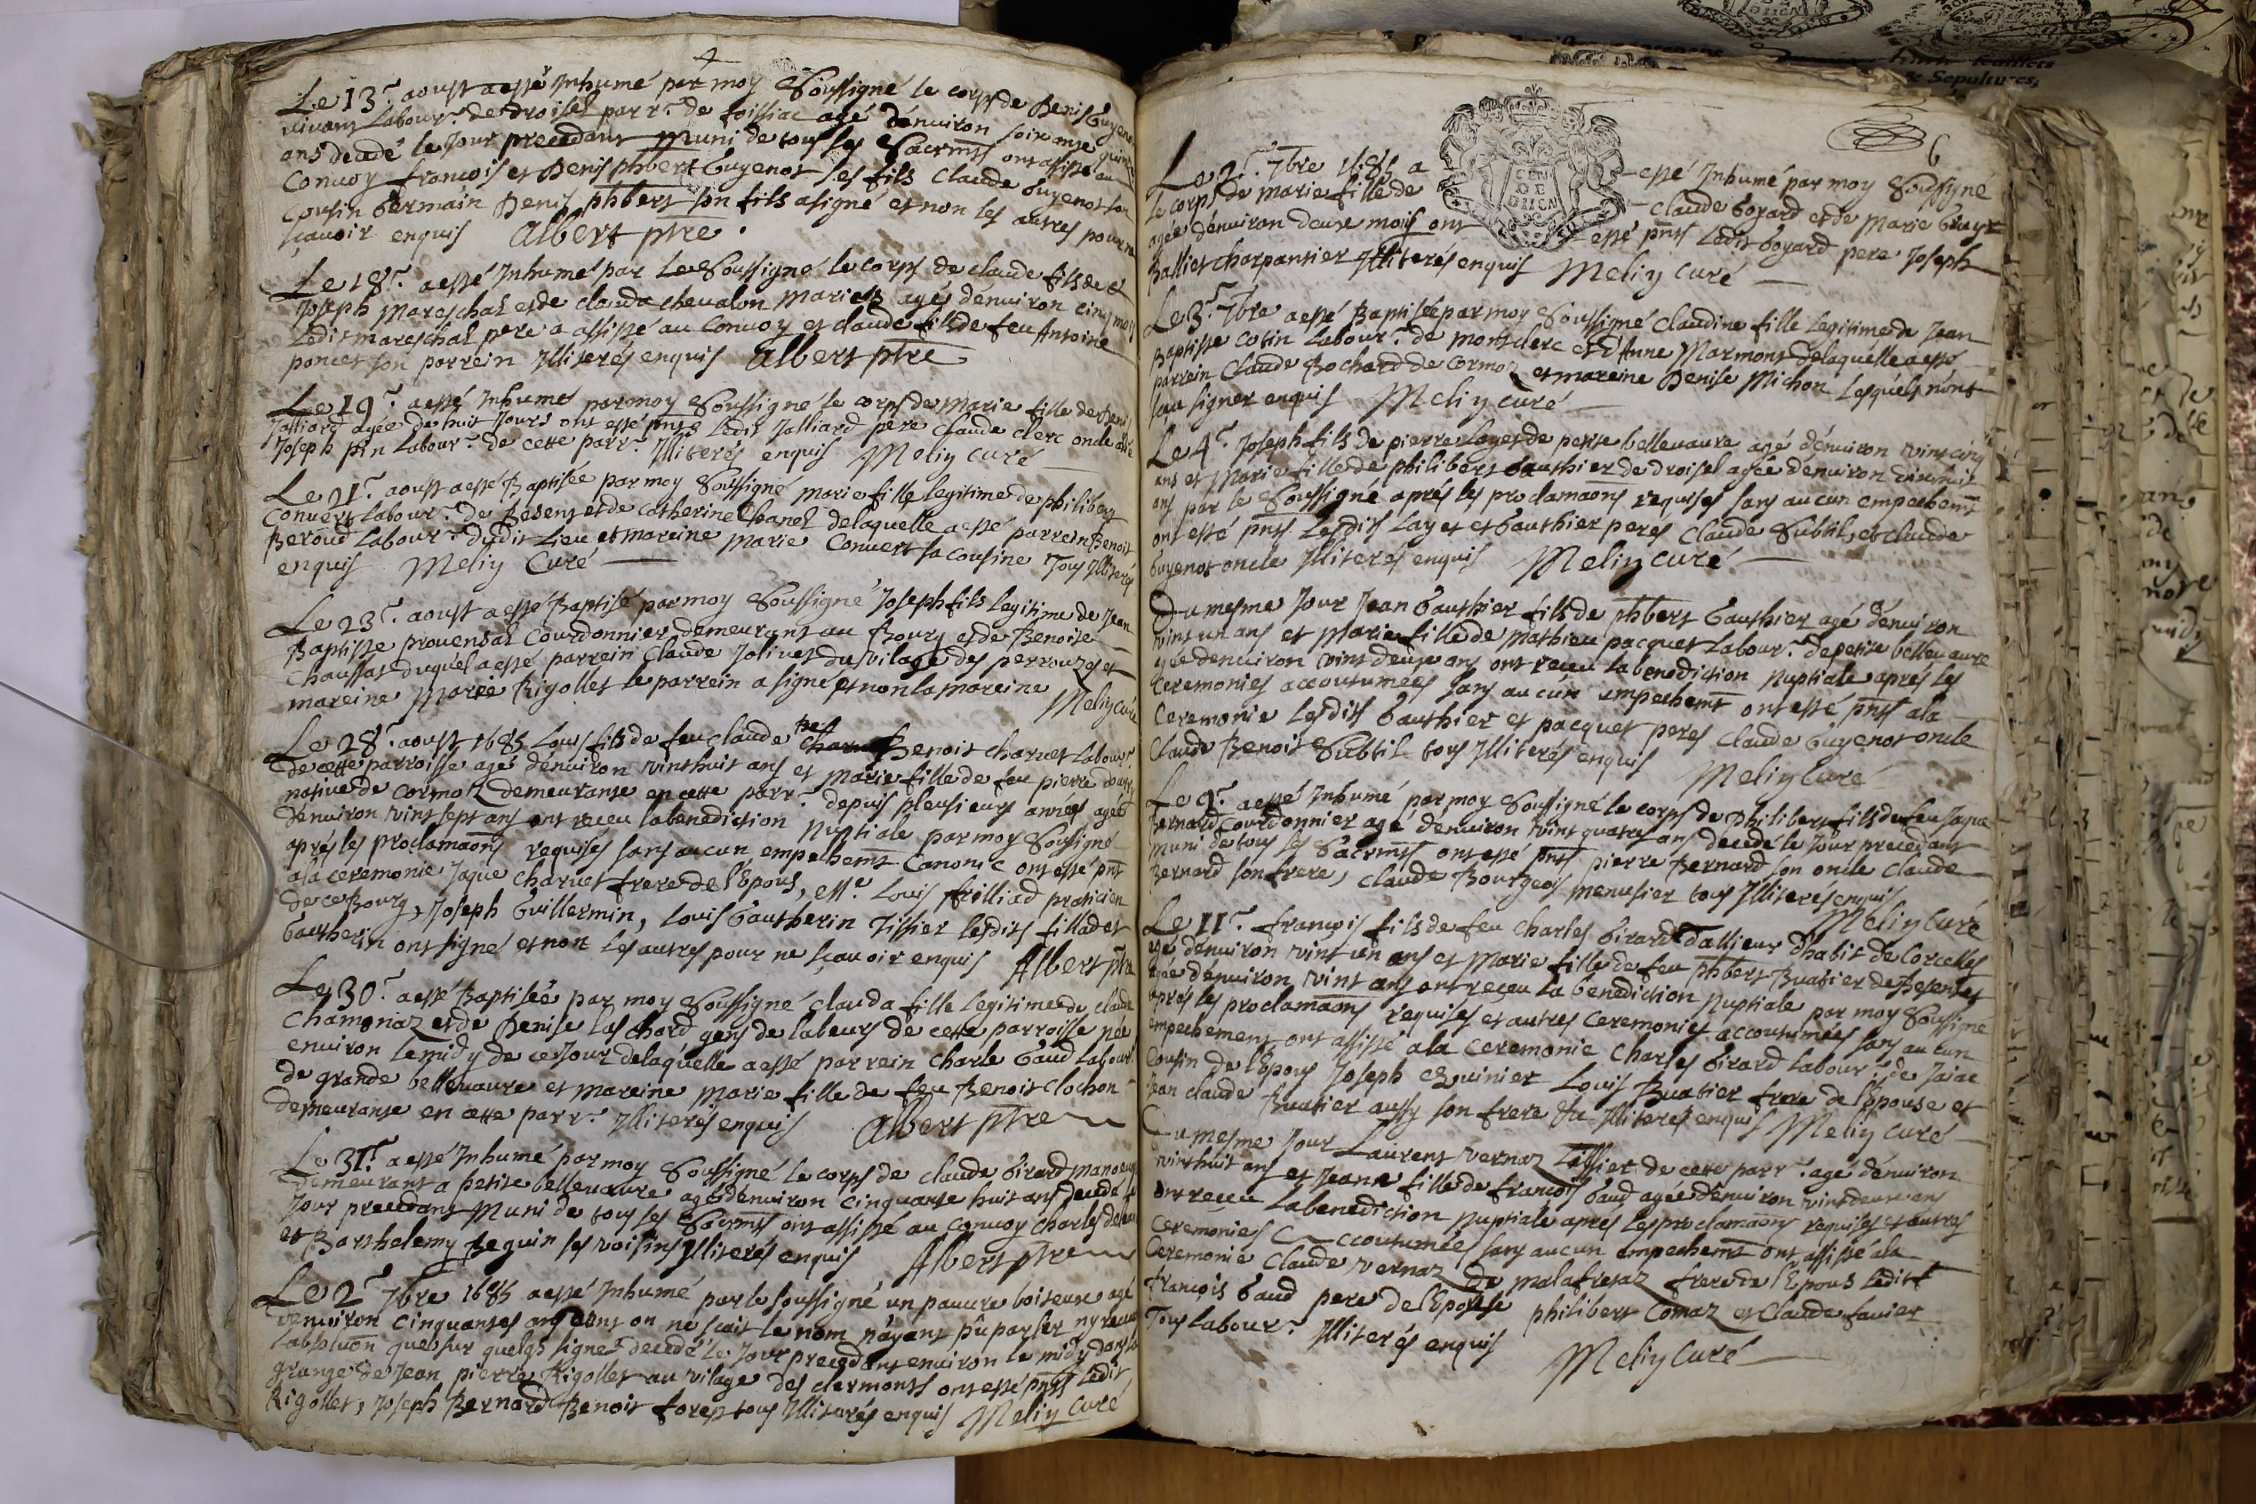 4
Le 13.e aoust a esté Inhumé par moy Soussigné le corps de Denis Guyenot
vivant Labour.r de droisel parr.e de foissiac agé d'environ soixante quinze
ans decedé le Jour precedant muni de tous les Sacrmts ont assisté au
Convoy francois et Denis phbert Guyenot ses fils Claude Guyenot son
Cousin Germain Denis phbert son fils a signé et non les autres pour ne
scavoir enquis Albert ptre.
Le 18.e a esté Inhumé par Le Soussigné le corps de claude fils de
Joseph Mareschal et de clauda chevalon mariés agés d'environ cinq mois
Ledit mareschal pere a assisté au Convoy et claude fils de feu Antoine
poncet son parrein Illiterés enquis Albert ptre
Le 19.e a esté Inhumé par moy Soussigné le corps de Marie fille de Denis
Jalliard agée de huit Jours ont esté pnts Ledit Jalliard pere Claude clerc oncle
Joseph pin Labour.r de cette parr.e Illiterés enquis Meliy curé
Le 21.e aoust a esté Baptisée par moy Soussigné marie fille legitime de philibert
Convert Labour.r de Besent et de Catherine Chanel de laquelle a esté parrein Benoit
Beroud Labour.r dudit Lieu et mareine Marie Convert sa Cousine Tous Illiterés
enquis Meliy Curé
Le 23.e aoust a esté Baptisé par moy Soussigné Joseph fils legitime de Jean
Baptiste provensal Courdonnier demeurant au Bourg et de Benoite
Chaussat duquel a esté parrein Claude Jolivet du vilage des perrouzes et
mareine Marie Rigollet le parrein a signé et non la mareine Meliy curé
Le 28.e aoust 1685 Louis fils de feu Claude Benoit charvet Labour.r
de cette parroisse agé d'environ vint huit ans et Marie fille de feu pierre
native de Cormoz demeurante en cette parr.e depuis plusieurs annees agée
d'environ vint sept ans ont receu la benediction Nuptiale par moy Soussigné
aprés les proclamaons requises sans aucun empechemt Canonic ont esté pnt
a la ceremonie Jaque Charvet frere de l'Epous, et Me Louis frilliad praticien
de ce Bourg, Joseph Guillermin, Louis Gautherin Tissier lesdits filladet
Gautherin ont signé et non les autres pour ne sçavoir enquis Albert ptre
Le 30.e a esté Baptisée par moy Soussigné Clauda fille legitime de claude
Chamonaz et de Denise laschard gens de labeurs de cette parroisse née
environ le midy de ce Jour de laquelle a esté parrein Charle Gaud Labour.r
de grande bellevaure et mareine Marie fille de feu Benoit Clochon
demeurante en cette parr.e Illiterés enquis Albert ptre
Le 31.e a esté Inhumé par moy Soussigné le corps de claude Girard manoeuvre
demeurant a petite bellevaure agé d'environ Cinquante huit ans decedé le
Jour precedant Muni de tous les Sacrmts ont assisté au convoy Charles
et Barthelemy Beguin ses voisins Illiterés enquis Albert ptre
Le 2.e 7bre 1685 a esté Inhumé par le soussigné un pauvre boiteux agé
d'environ Cinquantes ans dont on ne scait le nom n'ayant pû parler ny recevoir
l'absoluon que sur quelqs signes decedé le Jour precedant environ le midy dans la
grange de Jean pierre Rigollet au vilage des clermonts ont esté pnts ledit
Rigollet, Joseph Bernard Benoit forest tous Illiterés enquis Meliy curé
6
GEN
DE
DIION
Le 2.e 7bre 1685 a esté Inhumé par moy Soussigné
le corps de Marie fille de Claude Goyard et de Marie Gruyt
agée d'environ deux mois ont esté pnts Ledit Goyard pere Joseph
Balliet charpantier Illiterés enquis Meliy Curé
Le 3.e 7bre a esté Baptisée par moy Soussigné Claudine fille Legitime de Jean
Baptiste cotin Labour.r de montclerc et d'Anne Marmont de laquelle a esté
parrein Claude Bochard de Cormoz et mareine Denise Michon Lesquels n'ont
sceu signer enquis Meliy curé
Le 4.e Joseph fils de pierre Layet de petite bellevaure agé d'environ vint cinq
ans et Marie fille de philibert Gauthier de droisel agée d'environ dixhuit
ans par le Soussigné aprés les proclamaons requises sans aucun empechemt
ont esté pnts Lesdits Layet et Gauthier peres Claude Subtil, et claude
Guyenot oncle Illiterés enquis Meliy curé
Du mesme Jour Jean Gauthier fils de phbert Gauthier agé d'environ
vint un ans et Marie fille de Mathieu pacquet Labour.r de petite bellevaure
agée d'environ vint deux ans ont receu la benediction Nuptiale aprés les
Ceremonies accoutumées sans aucun empechemt ont esté pnts a la
Ceremonie Lesdits Gauthier et pacquet peres Claude Guyenot oncle
Claude Benoit Subtil tous Illiterés enquis Meliy Curé
Le 9.e a esté Inhumé par moy Soussigné le corps de Philibert fils de feu Jaque
Bernard Courdonnier agé d'environ vint quatres ans decedé le Jour precedant
Muni de tous les Sacrmts ont esté pnts pierre Bernard son oncle Claude
Bernard son frere, Claude Bourgeois menusier tous Illiterés enquis
Meliy Curé
Le 11.e françois fils de feu Charles Girard d'allieur d'habit de Corcelles
agé d'environ vint un ans et Marie fille de feu phbert Buatier de Besentet
agée d'environ vint ans ont reçeu la benediction Nuptiale par moy Soussigné
aprés les proclamaons requises et autres Ceremonies accoutumées sans aucun
empechement ont assisté a la Ceremonie Charles Girard Labour.r de
Cousin de l'Epous Joseph Guinier Louis Buatier frere de l'Epouse et
Jean claude Buatier aussy son frere Illiterés enquis Meliy Curé
Du mesme Jour Laurent vernaz Tissier de cette parr.e agé d'environ
vint huit ans et Jeanne fille de francois Gaud agée d'environ vint deux ans
ont reçeu La benediction Nuptiale aprés les proclamaons requises et autres
Ceremonies accoutumées sans aucun empechemt ont assisté a la
Ceremonie Claude vernaz de malafretaz frere de l'Epous Ledit
françois Gaud pere de l'Epouse philibert Comaz et Claude favier
Tous Labour.r Illiterés enquis
Meliy Curé